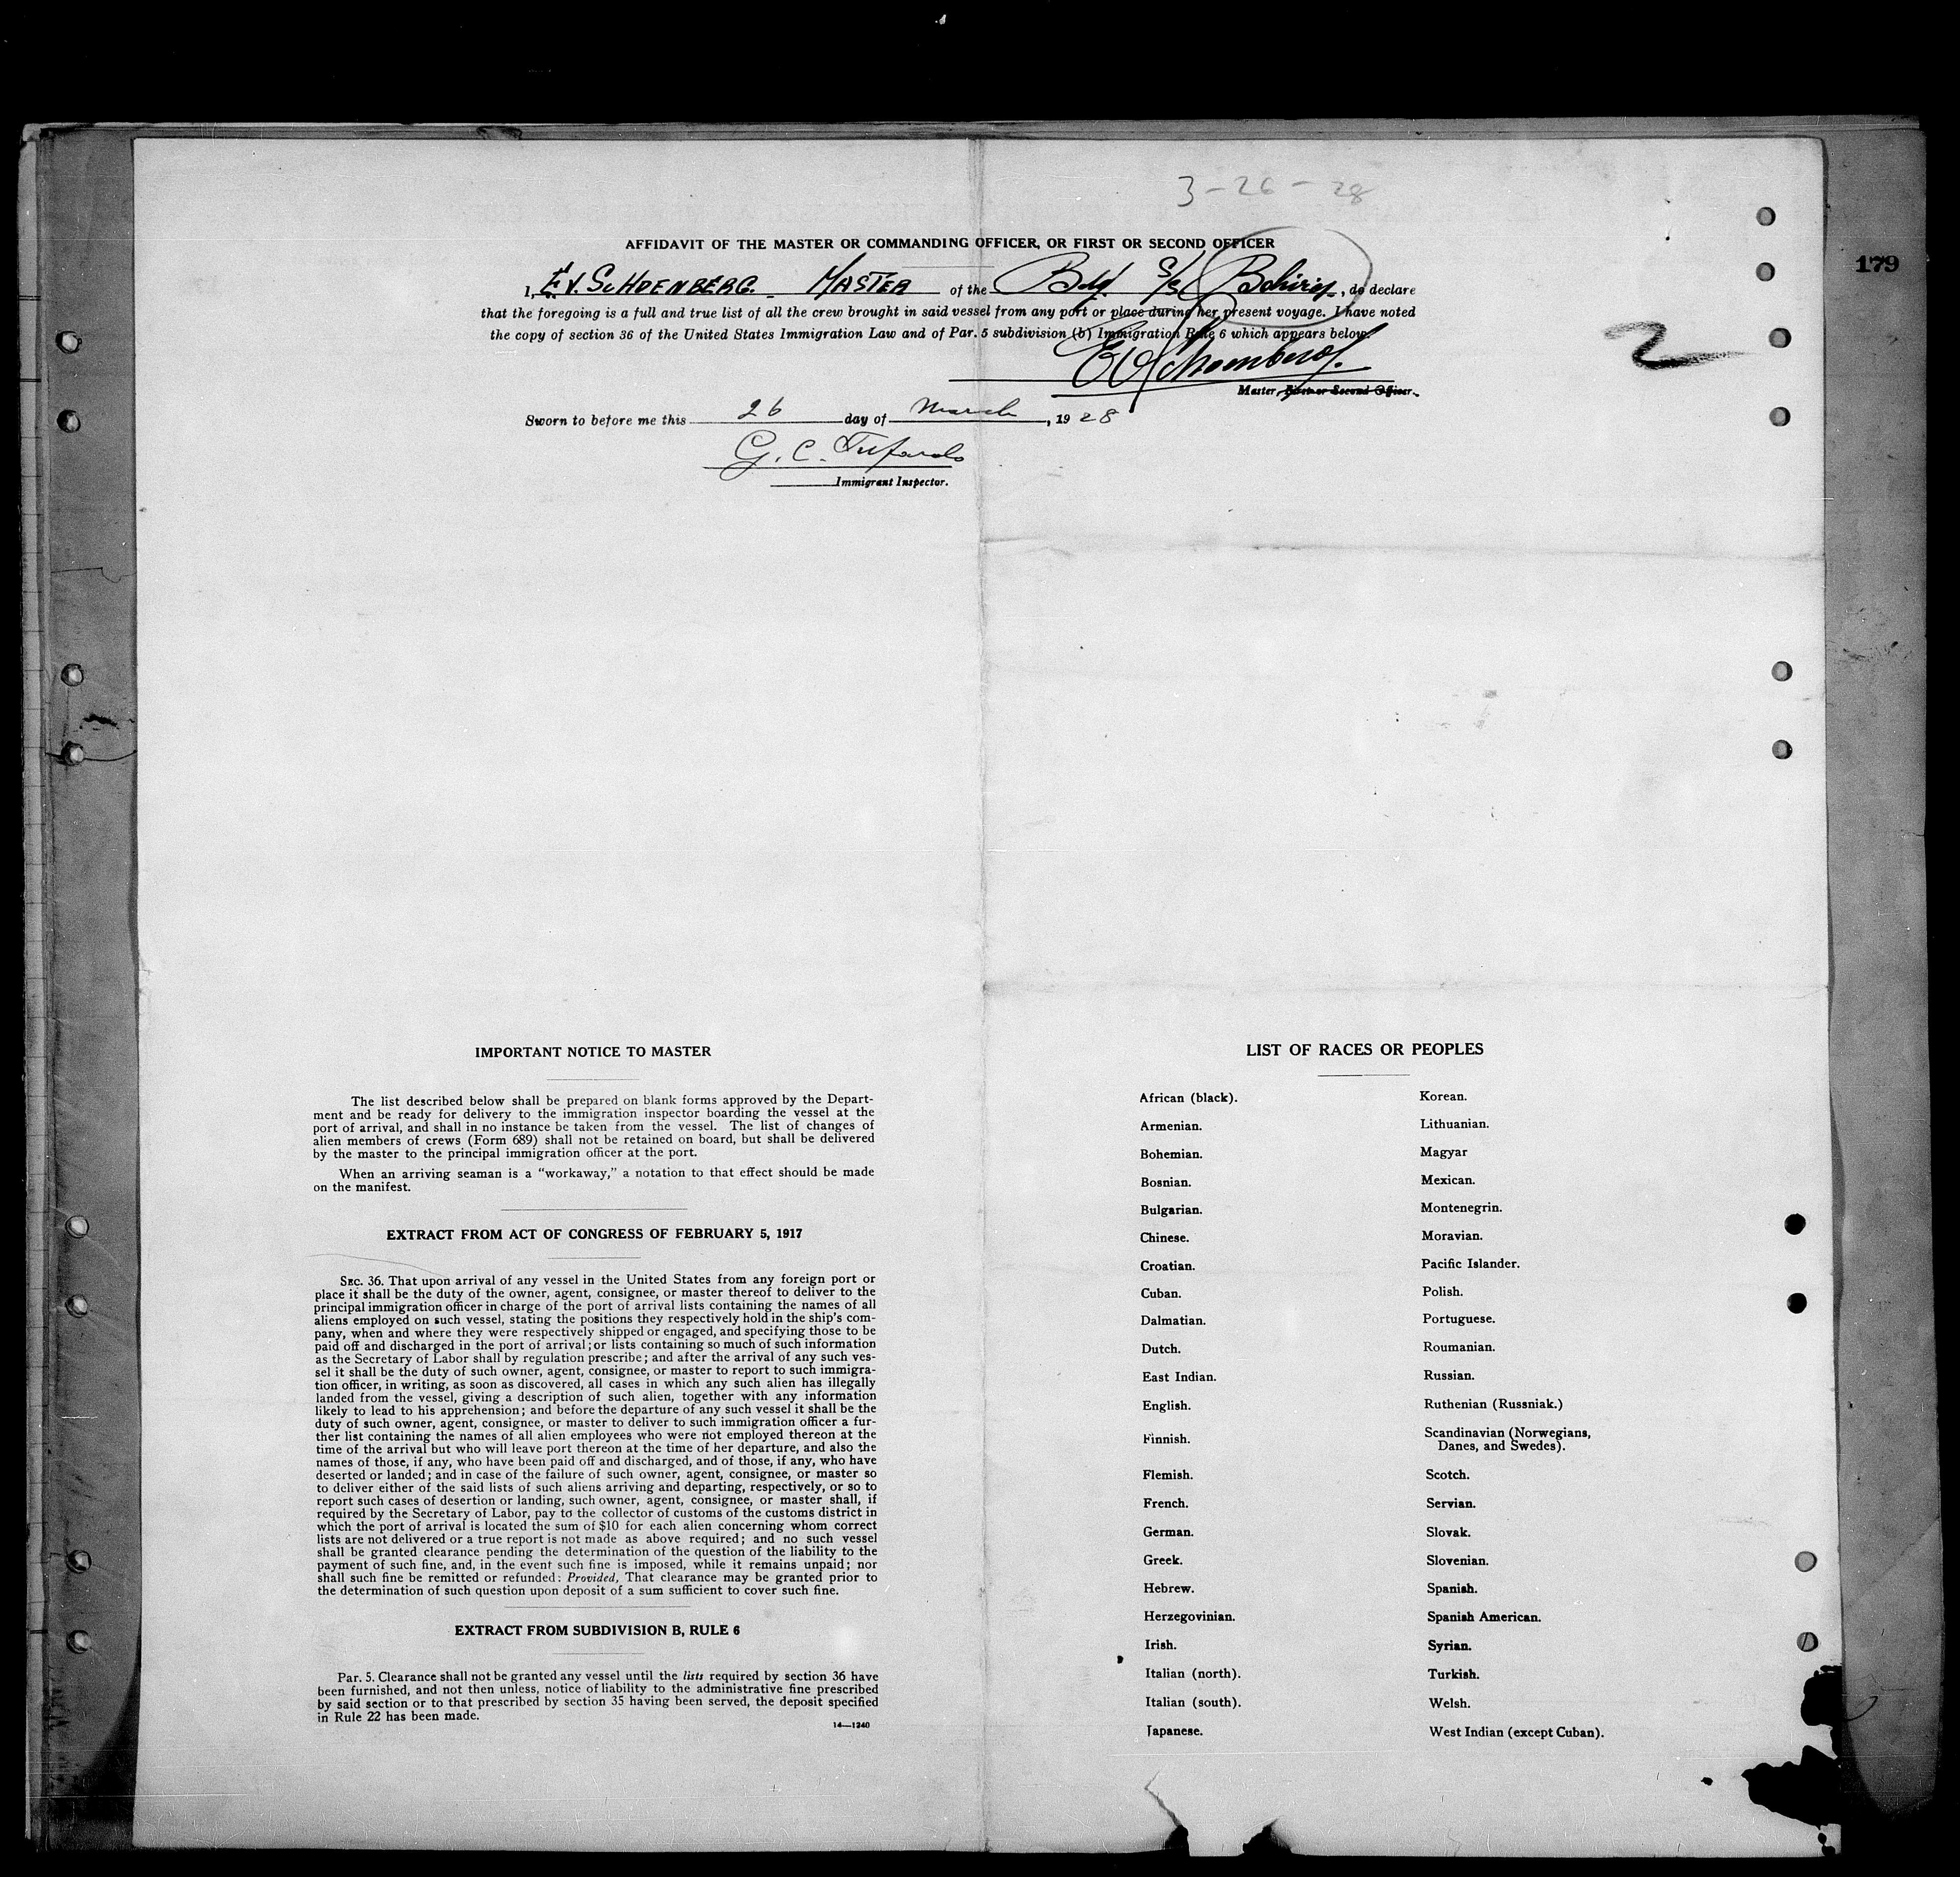 3-26-28
179
AFFIDAVIT OF THE MASTER OR COMMANDING OFFICER, OR FIRST OR SECOND OFFICER
I, E.V. SCHOENBERG. MASTER of the Belg. S/S, do declare
that the foregoing is a full and true list of all the crew brought in said vessel from any port or place during her present voyage. I have noted
the copy of section 36 of the United States Immigration Law and of Par. 5 subdivision (b) Immigration Rule 6 which appears below.
2
Master, First or Second Officer.
Sworn to before me this 26 day of March, 1928
G. C.
Immigrant Inspector.
IMPORTANT NOTICE TO MASTER
The list described below shall be prepared on blank forms approved by the Depart-
ment and be ready for delivery to the immigration inspector boarding the vessel at the
port of arrival, and shall in no instance be taken from the vessel. The list of changes of
alien members of crews (Form 689) shall not be retained on board, but shall be delivered
by the master to the principal immigration officer at the port.
When an arriving seaman is a "workaway," a notation to that effect should be made
on the manifest.
EXTRACT FROM ACT OF CONGRESS OF FEBRUARY 5, 1917
SEC. 36. That upon arrival of any vessel in the United States from any foreign port or
place it shall be the duty of the owner, agent, consignee, or master thereof to deliver to the
principal immigration officer in charge of the port of arrival lists containing the names of all
aliens employed on such vessel, stating the positions they respectively hold in the ship's com-
pany, when and where they were respectively shipped or engaged, and specifying those to be
paid off and discharged in the port of arrival; or lists containing so much of such information
as the Secretary of Labor shall by regulation prescribe; and after the arrival of any such ves-
sel it shall be the duty of such owner, agent, consignee, or master to report to such immigra-
tion officer, in writing, as soon as discovered, all cases in which any such alien has illegally
landed from the vessel, giving a description of such alien, together with any information
likely to lead to his apprehension; and before the departure of any such vessel it shall be the
duty of such owner, agent, consignee, or master to deliver to such immigration officer a fur-
ther list containing the names of all alien employees who were not employed thereon at the
time of the arrival but who will leave port thereon at the time of her departure, and also the
names of those, if any, who have been paid off and discharged, and of those, if any, who have
deserted or landed; and in case of the failure of such owner, agent, consignee, or master so
to deliver either of the said lists of such aliens arriving and departing, respectively, or so to
report such cases of desertion or landing, such owner, agent, consignee, or master shall, if
required by the Secretary of Labor, pay to the collector of customs of the customs district in
which the port of arrival is located the sum of $10 for each alien concerning whom correct
lists are not delivered or a true report is not made as above required; and no such vessel
shall be granted clearance pending the determination of the question of the liability to the
payment of such fine, and, in the event such fine is imposed, while it remains unpaid; nor
shall such fine be remitted or refunded: Provided, That clearance may be granted prior to
the determination of such question upon deposit of a sum sufficient to cover such fine.
EXTRACT FROM SUBDIVISION B, RULE 6
Par. 5. Clearance shall not be granted any vessel until the lists required by section 36 have
been furnished, and not then unless, notice of liability to the administrative fine prescribed
by said section or to that prescribed by section 35 having been served, the deposit specified
in Rule 22 has been made.
14—1240
LIST OF RACES OR PEOPLES
African (black).
Armenian.
Bohemian.
Bosnian.
Bulgarian.
Chinese.
Croatian.
Cuban.
Dalmatian.
Dutch.
East Indian.
English.
Finnish.
Flemish.
French.
German.
Greek.
Hebrew.
Herzegovinian.
Irish.
Italian (north).
Italian (south).
Japanese.
Korean.
Lithuanian.
Magyar
Mexican.
Montenegrin.
Moravian.
Pacific Islander.
Polish.
Portuguese.
Roumanian.
Russian.
Ruthenian (Russniak.)
Scandinavian (Norwegians,
Danes, and Swedes).
Scotch.
Servian.
Slovak.
Slovenian.
Spanish.
Spanish American.
Syrian.
Turkish.
Welsh.
West Indian (except Cuban).